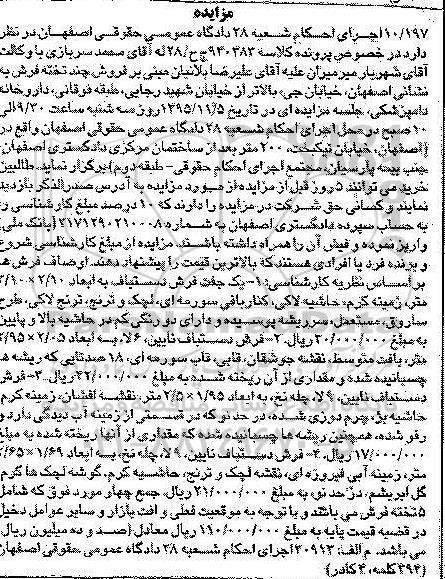 مزایده
۱۰/۱۹۷ اجرای احکام شعبه ۲۸ دادگاه عمومی حقوقی اصفهان در نظر
دارد در خصوص پرونده کلاسه ۹۴۰۳۸۳ ج ح/۲۸ له آقای محمد سربازی با وکالت
آقای شهریار میرمیران علیه آقای علیرضا بلانیان مبنی بر فروش چند تخته فرش به
نشانی اصفهان، خیابان جی، بالاتر از خیابان شهید رجایی، طبقه فوقانی، داروخانه
دامپزشکی، جلسه مزایده ای در تاریخ ۱۳۹۵/۱۱/۵ روز سه شنبه ساعت ۹/۳۰ الی
۱۰ صبح در محل اجرای احکام شعبه ۲۸ دادگاه عمومی حقوقی اصفهان واقع در
(اصفهان، خیابان نیکبخت، ۲۰۰ متر بعد از ساختمان مرکزی دادگستری اصفهان،
جنب بیمه پارسیان، مجتمع اجرای احکام حقوقی- طبقه دوم) برگزار نماید. طالبین
خرید می توانند ۵ روز قبل از مزایده از مورد مزایده به آدرس صدرالذکر بازدید
نمایند و کسانی حق شرکت در مزایده را دارند که ۱۰ درصد مبلغ کارشناسی را
به حساب سپرده دادگستری اصفهان به شماره ۲۱۷۱۲۹۰۲۱۰۰۰۸ بانک ملی
واریز نموده و فیش آن را همراه داشته باشند. مزایده از مبلغ کارشناسی شروع
و برنده فرد یا افرادی هستند که بالاترین قیمت را پیشنهاد دهند. اوصاف فرش ها
بر اساس نظریه کارشناسی: ۱- یک جفت فرش دستباف به ابعاد ۲/۱۰×۳/۱۰
متر، زمینه کرم، حاشیه لاکی، کنار بافی سورمه ای، لچک و ترنج، ترنج لاکی، طرح
ساروق، مستعمل، سرریشه پوسیده و دارای دو رنگی کم در حاشیه بالا و پایین
به مبلغ ۳۰/۰۰۰/۰۰۰ ریال. ۲- فرش دستباف نایین، ۶ لا، به ابعاد ۲/۰۵×۲/۹۵
متر، بافت متوسط، نقشه جوشقان، قابی، قاب سورمه ای، ۱۸ صدتایی که ریشه ها
چسبانیده شده و مقداری از آن ریخته شده به مبلغ ۳۲/۰۰۰/۰۰۰ ریال. ۳- فرش
دستباف نایین، ۹ لا، چله نخ، به ابعاد ۱/۹۵×۲/۵ متر، نقشه افشان، زمینه کرم،
حاشیه پژ، چرم دوزی شده، در حد نو که در قسمتی از زمینه آب دیدگی دارد و
رفو شده، همچنین ریشه ها چسبانده شده که مقداری از آنها ریخته شده به مبلغ
۱۷/۰۰۰/۰۰۰ ریال. ۴- فرش دستباف نایین، ۹ لا، چله نخ، به ابعاد ۱/۶۹×۲/۶۵
متر، زمینه آبی فیروزه ای، نقشه لچک و ترنج، حاشیه کرم، گوشه لچک ها کرم،
گل ابریشم، در حد نو، به مبلغ ۳۱/۰۰۰/۰۰۰ ریال. جمع چهار مورد فوق که شامل
۵ تخته فرش می باشد و با توجه به موقعیت فعلی و افت بازار و سایر عوامل دخیل
در قضیه قیمت پایه به مبلغ ۱۱۰/۰۰۰/۰۰۰ ریال معادل (صد و ده میلیون ریال)
می باشد. م الف: ۳۰۹۱۳ اجرای احکام شعبه ۲۸ دادگاه عمومی حقوقی اصفهان
(۲۹۴ کلمه، ۴ کادر)